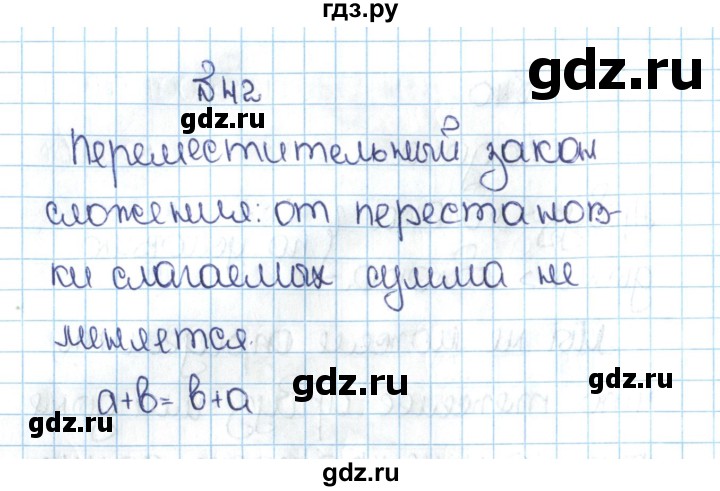 гдз.ру
№42
gdz.ru
gdz.ru
Переместительный закон
сложения: от перестанов-
ки слагаемых сумма не
меняется.
a+b=b+a
gdz.ru
gdz.ru
gdz.ru
gdz.ru